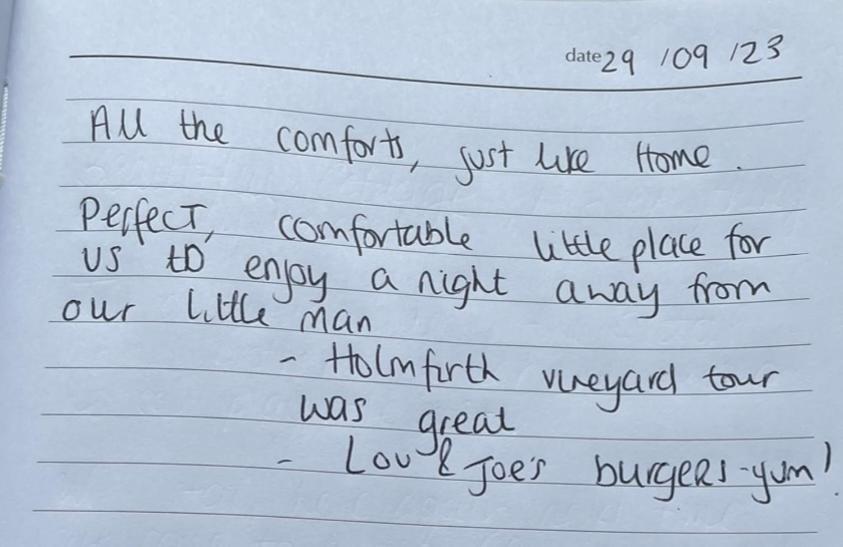 date 29 / 09 / 23
All the comforts, just like Home.
Perfect, comfortable little place for
us to enjoy a night away from
our little man
- Holmfirth vineyard tour
was great
- Lou & Joe's burgers - yum!